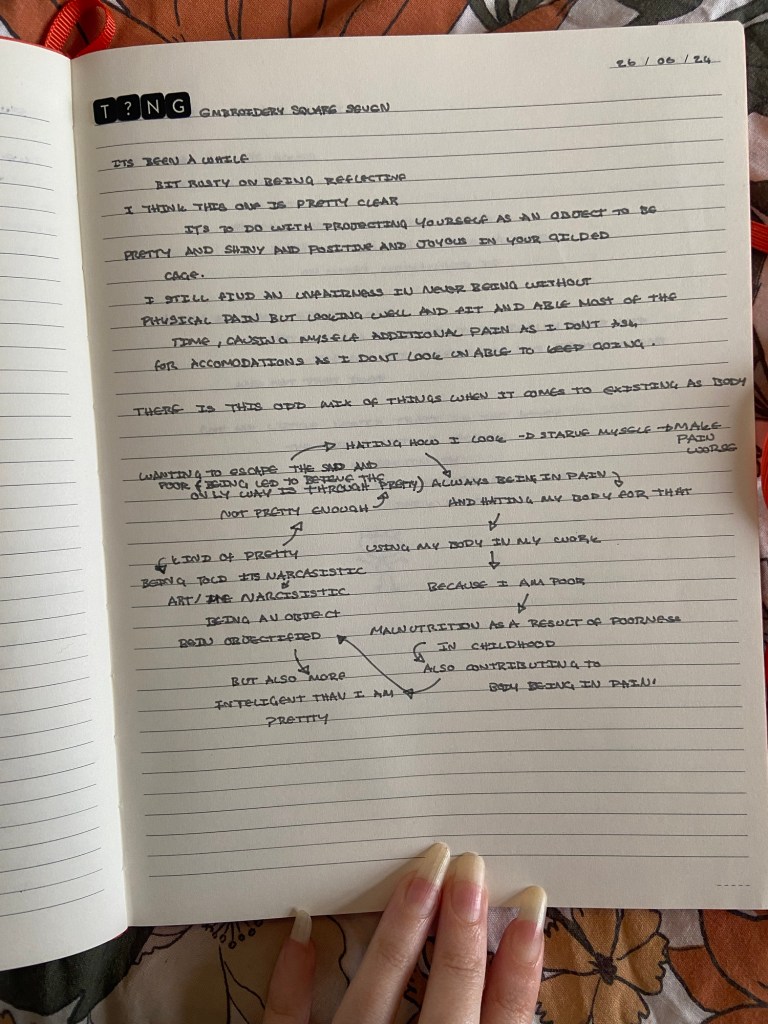 26 / 06 / 24
T?NG EMBROIDERY SQUARE SEVEN
ITS BEEN A WHILE
BIT RUSTY ON BEING REFLECTIVE
I THINK THIS ONE IS PRETTY CLEAR
ITS TO DO WITH PROJECTING YOURSELF AS AN OBJECT TO BE
PRETTY AND SHINY AND POSITIVE AND JOYOUS IN YOUR GILDED
CAGE.
I STILL FIND AN UNFAIRNESS IN NEVER BEING WITHOUT
PHYSICAL PAIN BUT LOOKING WELL AND FIT AND ABLE MOST OF THE
TIME, CAUSING MYSELF ADDITIONAL PAIN AS I DONT ASK
FOR ACCOMODATIONS AS I DONT LOOK UNABLE TO KEEP GOING.
THERE IS THIS ODD MIX OF THINGS WHEN IT COMES TO EXISTING AS BODY
→ HATING HOW I LOOK → STARVE MYSELF → MAKE
PAIN
WORSE
WANTING TO ESCAPE THE SAD AND
POOR (BEING LED TO BELIEVE THE
ONLY WAY IS THROUGH PRETTY)
ALWAYS BEING IN PAIN
AND HATING MY BODY FOR THAT
NOT PRETTY ENOUGH
KIND OF PRETTY
USING MY BODY IN MY WORK
BEING TOLD ITS NARCASISTIC
ART/ NARCISISTIC
BECAUSE I AM POOR
BEING AN OBJECT
BEIN OBJECTIFIED
MALNUTRITION AS A RESULT OF POORNESS
IN CHILDHOOD
ALSO CONTRIBUTING TO
BODY BEING IN PAIN.
BUT ALSO MORE
INTELIGENT THAN I AM
PRETTY